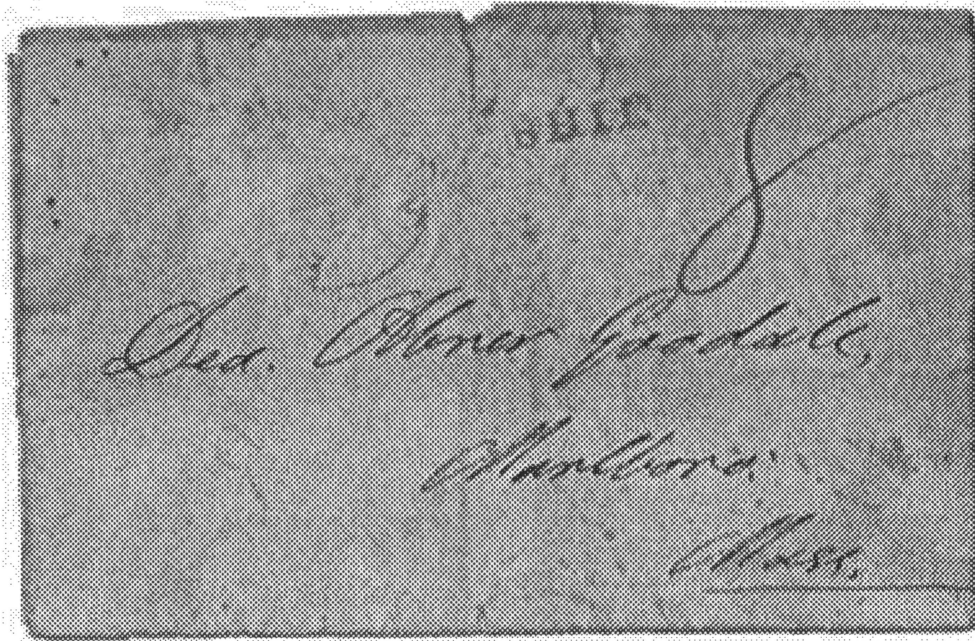 SHIP
8
Dea. Abner Goodale,
Marlboro'
Mass.